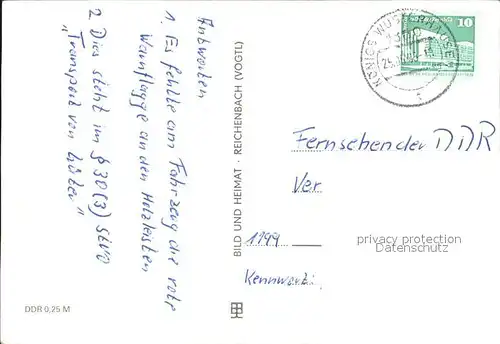 Antworten
1. Es fehlte am Fahrzeug die rote
Warnflagge an den Holzleisten
2. Dies steht im § 30 (3) StVO
„Transport von Güter"
BILD UND HEIMAT · REICHENBACH (VOGTL)
DDR 0,25 M
KÖNIGS WUSTERHAUSEN
10
Fernsehen der DDR
Ver
1199
Kennwort:
privacy protection
verwendet.com